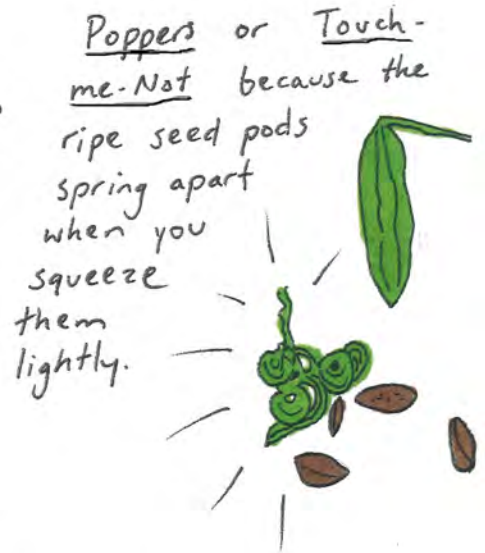 Poppers or Touch-
me-Not because the
ripe seed pods
spring apart
when you
squeeze
them
lightly.